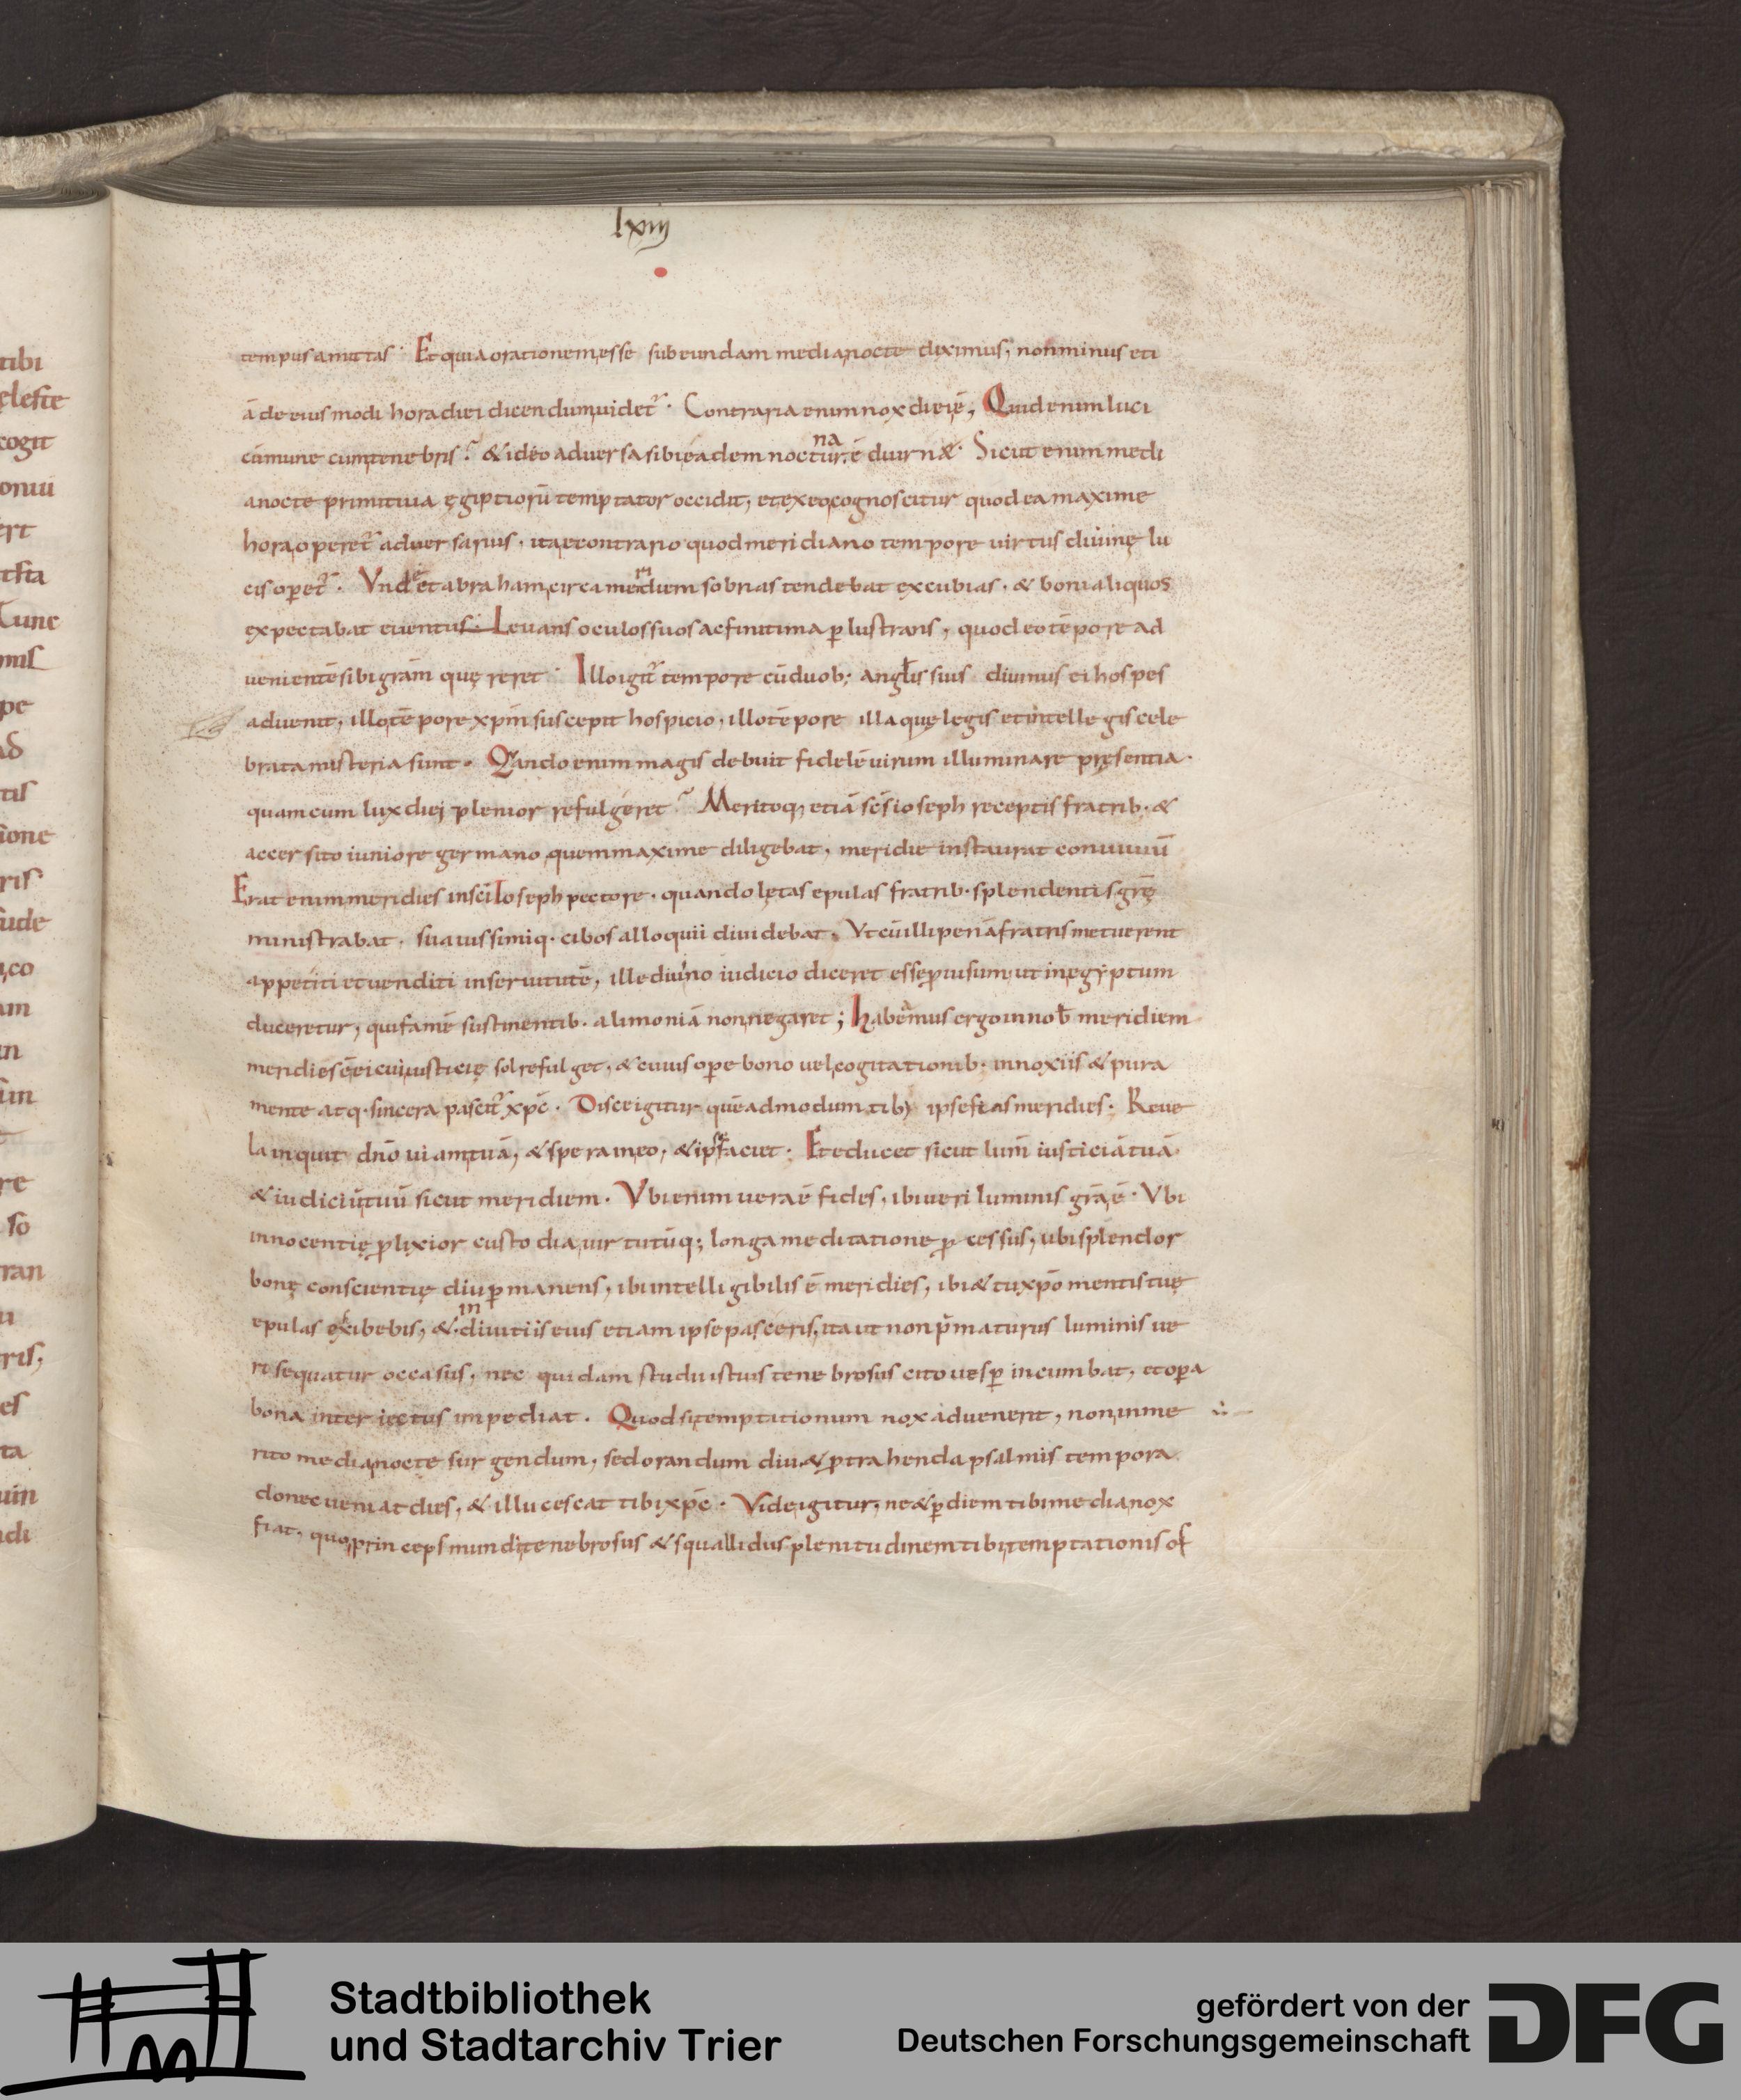 lxiij
tibi
ęleste
cogit
ert
Tunc
pe
ad
tis
sione
ris
co
am
in
re
so
ran
ris,
es
ta
di
tempus amittas · Et quia orationem esse sub eundam media nocte diximus, non minus eti
ā de eius modi hora diei dicendum uidet᷑ · Contraria enim nox diei ē, Quid enim luci
cūmune cum tenebris? & ideo aduersa sibi eadem nocturna ē diurnæ · Sicut enim medi
a nocte primitiua ęgiptiorū temptator occidit, et ex eo cognoscitur quod ea maxime
hora operet᷑ aduersarius, ita e contrario quod meridiano tempore uirtus diuinę lu
cis operet᷑ · Vnde et abraham circa meridiem sobrias tendebat excubias · & boni aliquos
expectabat euentus · Leuans oculos suos ac finitima ꝑlustrans, quod eo tēpore ad
uenientē sibi gratiam quęreret · Illo igit᷑ tempore cū duob; anglis suis diuinus ei hospes
aduenit, illo tēpore xpm̄ suscepit hospicio, illo tēpore illa quę legis et intellegis cele
brata misteria sunt · Qando enim magis debuit fidelē uirum illuminare pręsentia ·
quam cum lux diei plenior refulgeret? Meritoq; etiā scs̄ ioseph receptis fratrib · &
accersito iuniore germano quem maxime diligebat, meridie instaurat conuiuiū
Erat enim meridies in sci Ioseph pectore · quando lętas epulas fratrib · splendentis grę̄
ministrabat · suauissimiq · cibos alloquii diuidebat · Vt cū illi penā fratris metuerent
appetiti et uenditi in seruitutē, ille diuino iudicio diceret esse ꝓuisum ut in egẏptum
duceretur, qui famē sustinentib · alimoniā non negaret; habemus ergo in nob̄ meridiem
meridies ē ei cui iusticię sol refulget, & cuius ope bono uel cogitationib · innoxiis & pura
mente atq · sincera pascit᷑ xpc̄ · Disce igitur quēadmodum tibi ipse fias meridies · Reue
la inquit dn̄o uiam tuā, & spera in eo, & ipse faciet · Et educet sicut lum̄ iusticiā tuā
& iudiciū tuū sicut meridiem · Vbi enim uera ē fides, ibi ueri luminis gra̅ ē · Vbi
innocentię ꝓlixior custodia, uirtutūq; longa meditatione ꝓcessus, ubi splendor
bonę conscientię diu ꝑmanens, ibi intelligibilis ē meridies, ibi & tu xpō mentis tuę
epulas exhibebis, & in diuitiis eius etiam ipse pasceris, ita ut non p̄maturus luminis ue
ri sequatur occasus, nec quidam studiis tuis tenebrosus cito uesꝑ incumbat, et oꝑa
bona interiectus impediat · Quod si temptationum nox aduenerit, non inme
rito media nocte surgendum, sed orandum diu & ꝓtrahenda psalmis tempora
donec ueniat dies, & illucescat tibi xpc̄ · Vide igitur, ne & ꝑ diem tibi media nox
fiat, quo princeps mundi tenebrosus & squallidus plenitudinem tibi temptationis of
Stadtbibliothek
und Stadtarchiv Trier
gefördert von der
Deutschen Forschungsgemeinschaft
DFG